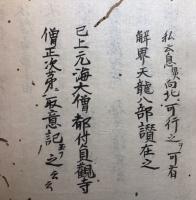 私云息災向北可行之可有
解界天龍八部讃在之
已上元海大僧都付貞觀寺
僧正次第取意記之云云